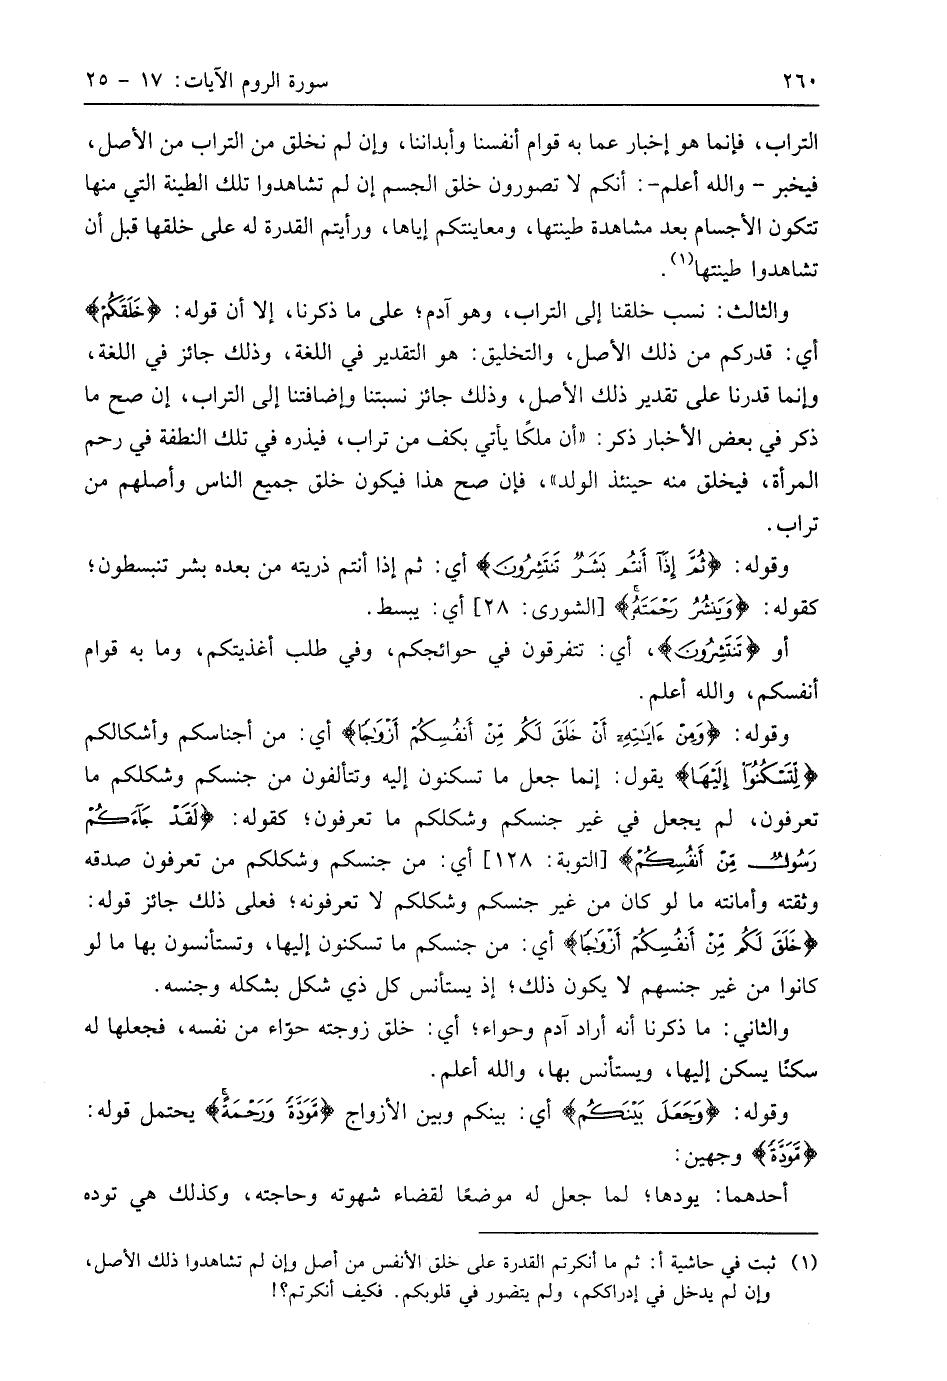 ٢٦٠ سورة الروم الآيات: ١٧ - ٢٥
التراب، فإنما هو إخبار عما به قوام أنفسنا وأبداننا، وإن لم نخلق من التراب من الأصل،
فيخبر - والله أعلم-: أنكم لا تصورون خلق الجسم إن لم تشاهدوا تلك الطينة التي منها
تتكون الأجسام بعد مشاهدة طينتها، ومعاينتكم إياها، ورأيتم القدرة له على خلقها قبل أن
تشاهدوا طينتها(١).
والثالث: نسب خلقنا إلى التراب، وهو آدم؛ على ما ذكرنا، إلا أن قوله: ﴿خَلَقَكُم﴾
أي: قدركم من ذلك الأصل، والتخليق: هو التقدير في اللغة، وذلك جائز في اللغة،
وإنما قدرنا على تقدير ذلك الأصل، وذلك جائز نسبتنا وإضافتنا إلى التراب، إن صح ما
ذكر في بعض الأخبار ذكر: «أن ملكًا يأتي بكف من تراب، فيذره في تلك النطفة في رحم
المرأة، فيخلق منه حينئذ الولد»، فإن صح هذا فيكون خلق جميع الناس وأصلهم من
تراب.
وقوله: ﴿ثُمَّ إِذَآ أَنتُم بَشَرٌ تَنتَشِرُونَ﴾ أي: ثم إذا أنتم ذريته من بعده بشر تنبسطون؛
كقوله: ﴿وَيَنشُرُ رَحْمَتَهُۥۚ﴾ [الشورى: ٢٨] أي: يبسط.
أو ﴿تَنتَشِرُونَ﴾، أي: تتفرقون في حوائجكم، وفي طلب أغذيتكم، وما به قوام
أنفسكم، والله أعلم.
وقوله: ﴿وَمِنْ ءَايَٰتِهِۦٓ أَنْ خَلَقَ لَكُم مِّنْ أَنفُسِكُمْ أَزْوَٰجًا﴾ أي: من أجناسكم وأشكالكم
﴿لِّتَسْكُنُوٓا۟ إِلَيْهَا﴾ يقول: إنما جعل ما تسكنون إليه وتتألفون من جنسكم وشكلكم ما
تعرفون، لم يجعل في غير جنسكم وشكلكم ما تعرفون؛ كقوله: ﴿لَقَدْ جَآءَكُمْ
رَسُولٌ مِّنْ أَنفُسِكُمْ﴾ [التوبة: ١٢٨] أي: من جنسكم وشكلكم من تعرفون صدقه
وثقته وأمانته ما لو كان من غير جنسكم وشكلكم لا تعرفونه؛ فعلى ذلك جائز قوله:
﴿خَلَقَ لَكُم مِّنْ أَنفُسِكُمْ أَزْوَٰجًا﴾ أي: من جنسكم ما تسكنون إليها، وتستأنسون بها ما لو
كانوا من غير جنسهم لا يكون ذلك؛ إذ يستأنس كل ذي شكل بشكله وجنسه.
والثاني: ما ذكرنا أنه أراد آدم وحواء؛ أي: خلق زوجته حوّاء من نفسه، فجعلها له
سكنًا يسكن إليها، ويستأنس بها، والله أعلم.
وقوله: ﴿وَجَعَلَ بَيْنَكُم﴾ أي: بينكم وبين الأزواج ﴿مَّوَدَّةً وَرَحْمَةًۚ﴾ يحتمل قوله:
﴿مَّوَدَّةً﴾ وجهين:
أحدهما: يودها؛ لما جعل له موضعًا لقضاء شهوته وحاجته، وكذلك هي توده
(١) ثبت في حاشية أ: ثم ما أنكرتم القدرة على خلق الأنفس من أصل وإن لم تشاهدوا ذلك الأصل،
وإن لم يدخل في إدراككم، ولم يتصور في قلوبكم. فكيف أنكرتم؟!